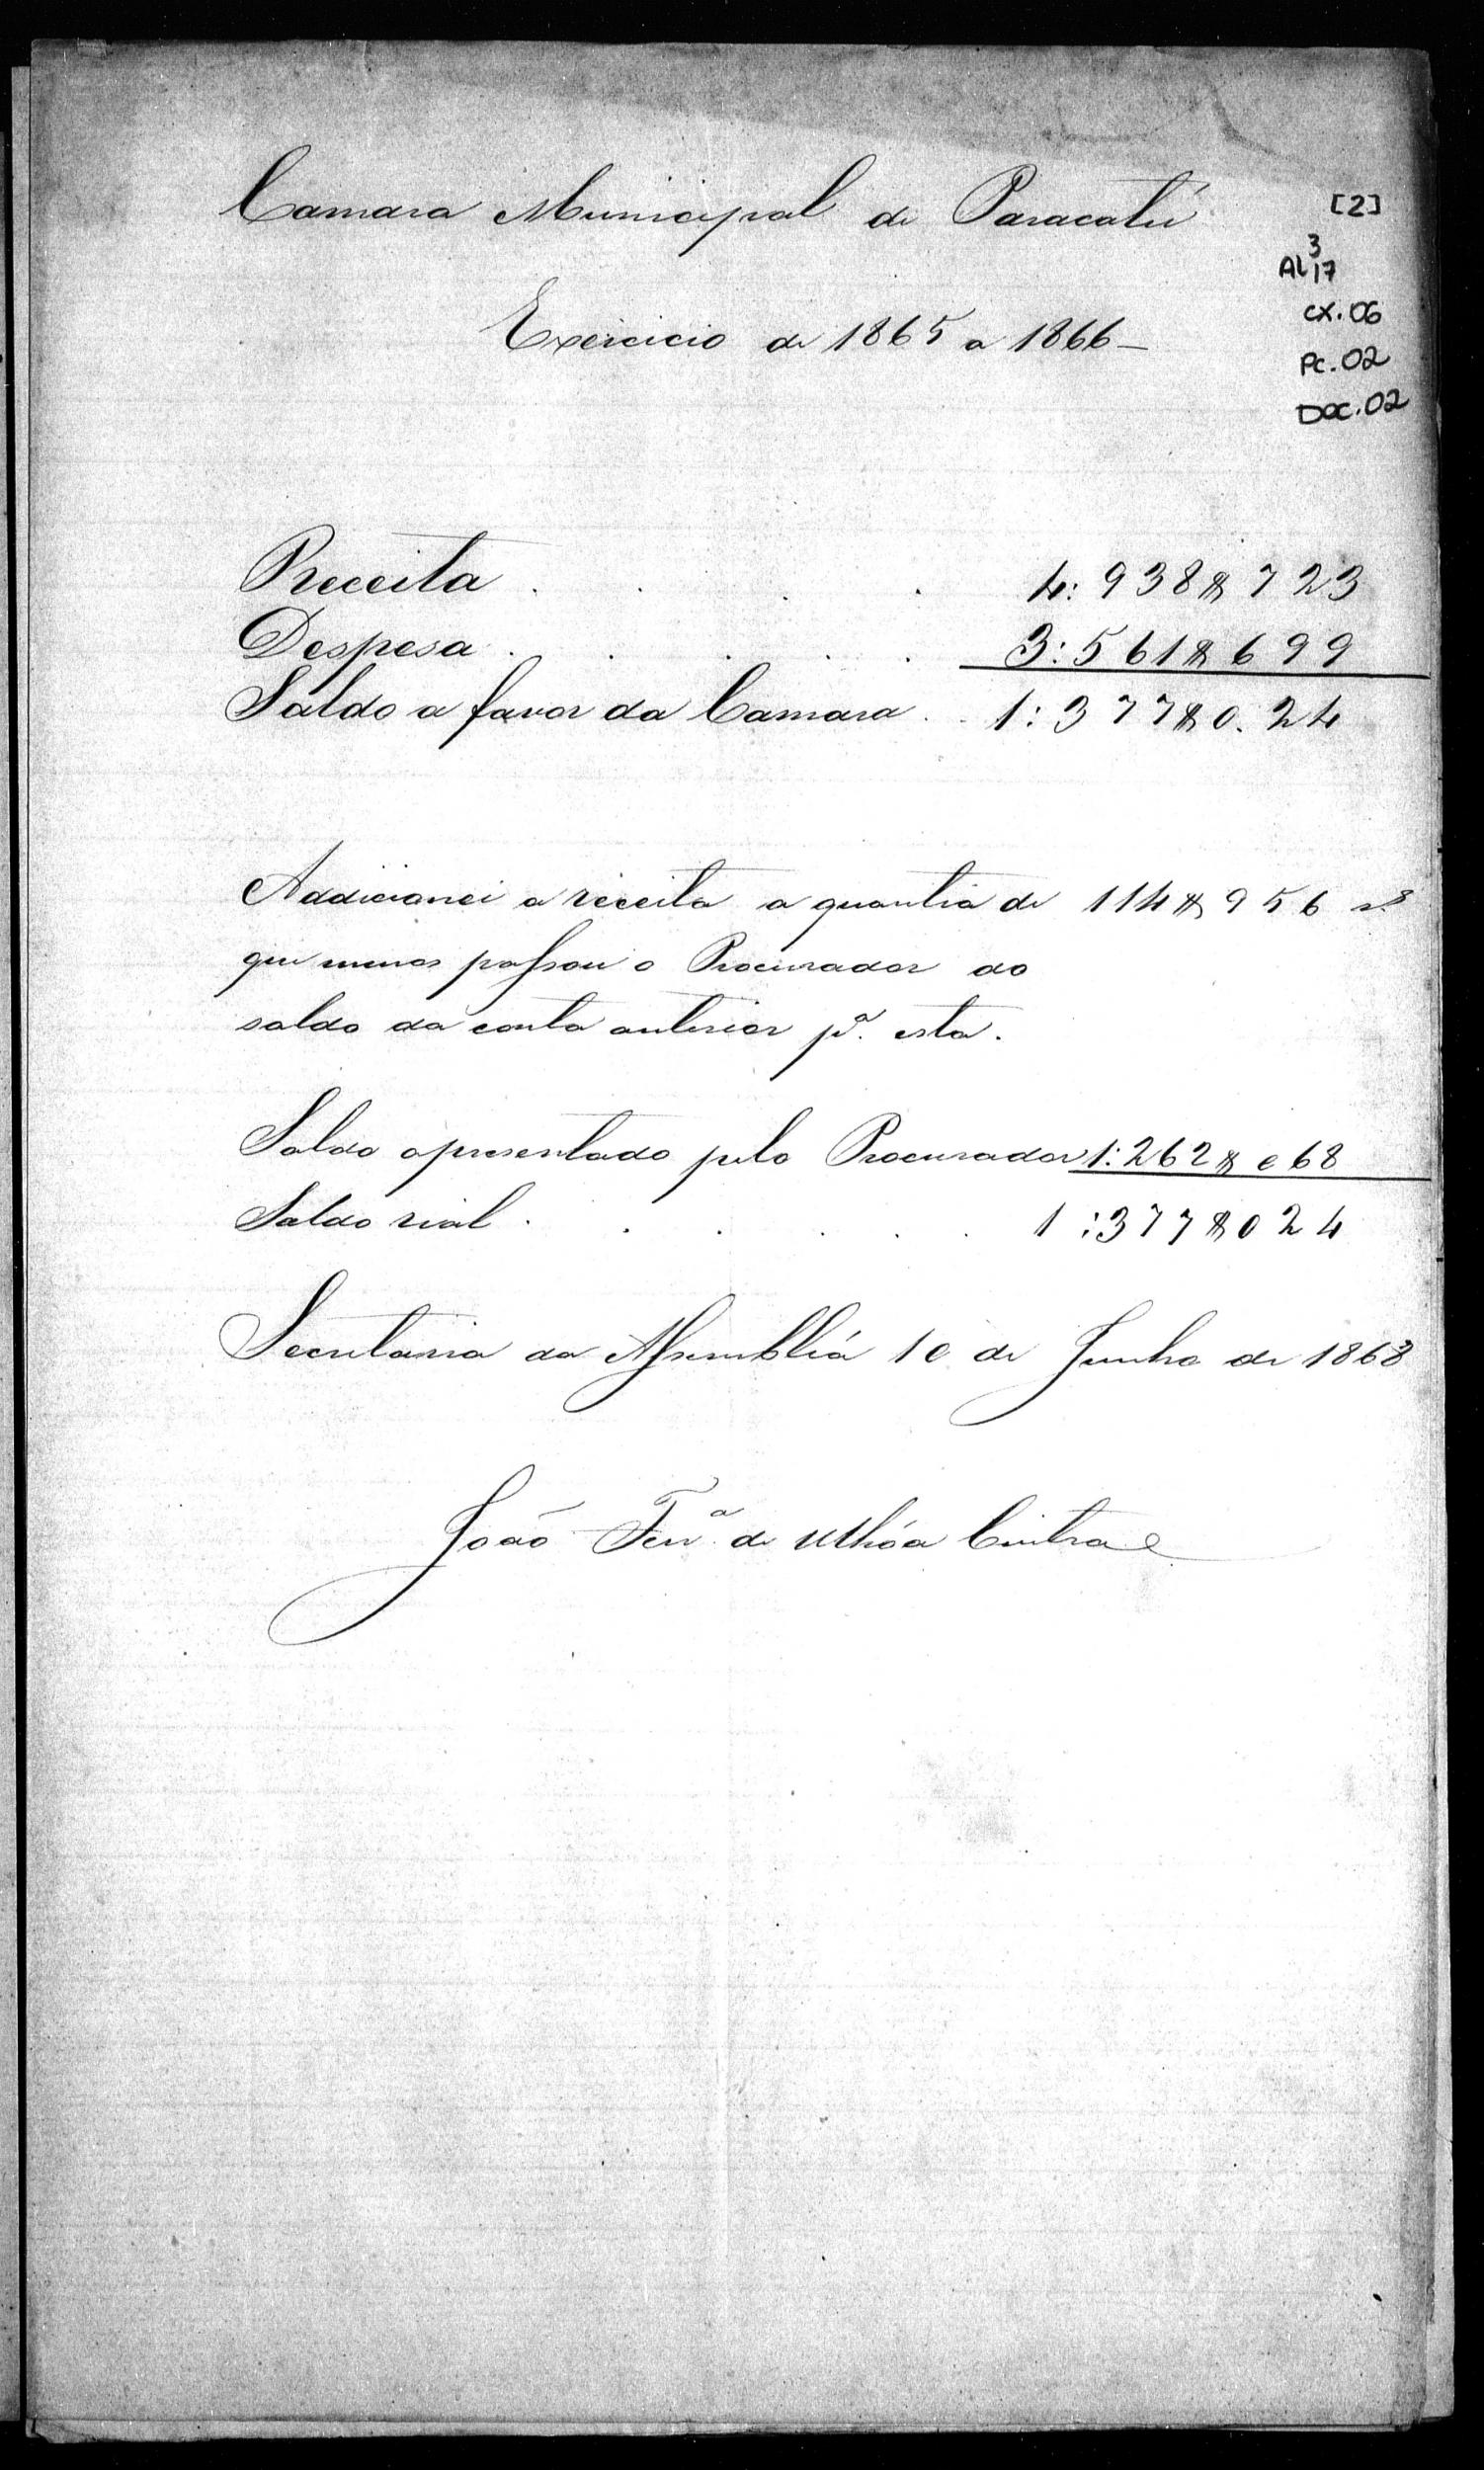 Camara Municipal de Paracatú
[2]
3
AL 17
CX. 06
Exercicio de 1865 a 1866 —
PC. 02
DOC. 02
Receita . . . . 4:938$723
Despesa . . . . . 3:561$699
Saldo a favor da Camara . . 1:377$0.24
Addicionei a receita a quantia de 114$956 rs
que menos passou o Procurador do
saldo da conta anterior pª. esta.
Saldo apresentado pelo Procurador 1:262$068
Saldo rial . . . . . . 1:377$024
Secretaria da Assembléa 10 de Junho de 1868
João Ferª de Ulhóa Cintra